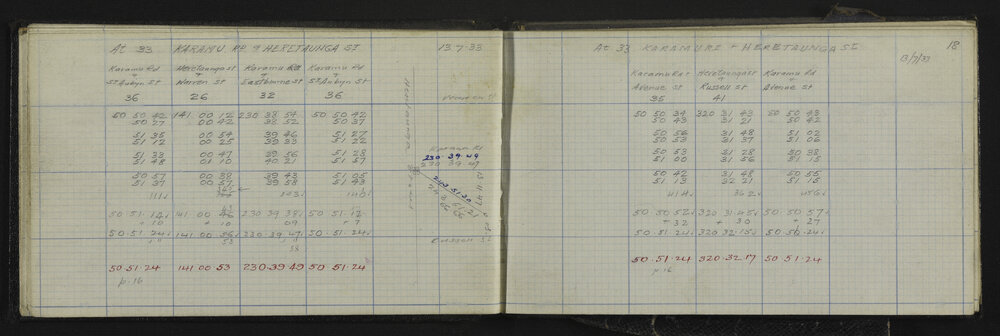 At 33 KARAMU RD & HERETAUNGA ST 13-7-33
Karamu Rd Heretaunga St Karamu Rd Karamu Rd
+ + + +
St Aubyn St Warren St Eastbourne St St Aubyn St
36 26 32 36
50 50 42 141 00 12 230 38 54 50 50 42
50 27 00 42 38 52 50 37
51 35 00 54 39 46 51 27
51 12 00 25 39 33 51 22
51 33 00 47 39 56 51 28
51 48 01 10 40 21 51 57
50 57 00 38 39 43 51 05
51 37 00 57 39 58 51 43
50.51.14 141 00 46 230 39 38 50 51.17
+10 +10 09 +7
50.51.24 141 00 56 230.39.47 50.51.24
50.51.24 141 00 53 230.39.49 50 51.24
p.16
Warren St
Heretaunga
Karamu Rd
230.39.49
230 39.47
Russell St
At 33 KARAMU RD + HERETAUNGA ST 18
13/7/33
Karamu Rd Heretaunga St Karamu Rd
+ + +
Avenue St Russell St Avenue St
35 41
50 50 34 320 31 43 50 50 43
50 43 31 21 50 42
50 56 31 48 51 02
50 53 31 37 51 06
50 53 31 28 50 38
51 00 31 56 51 15
50 42 31 48 50 55
51 13 32 21 51 15
50.50 52 320 31.45 50.50.57
+32 +30 +27
50.51.24 320 32.15 50.50.24
50.51.24 320.32.17 50.51.24
p.16